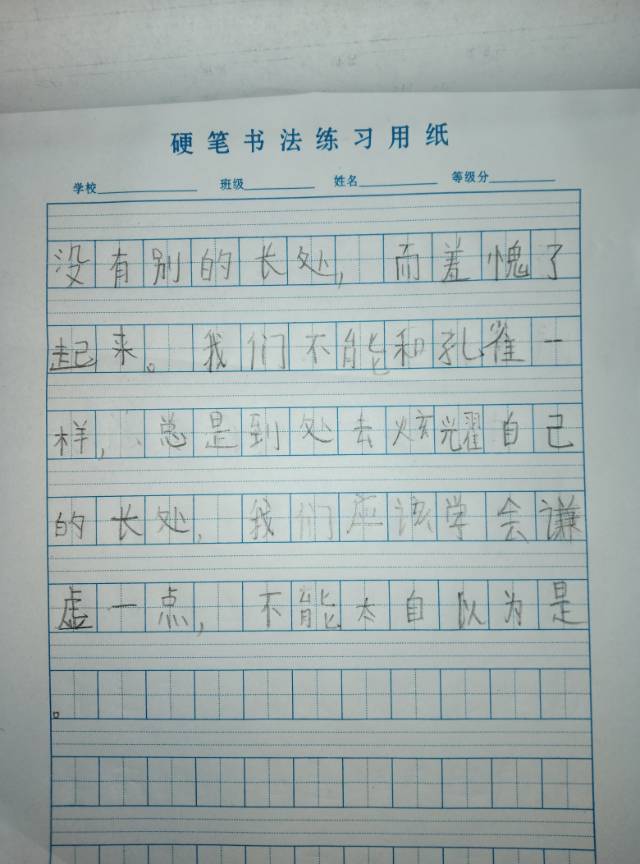 硬笔书法练习用纸
学校 班级 姓名 等级分
没有别的长处，而羞愧了
起来。我们不能和孔雀一
样，总是到处去炫耀自己
的长处，我们应该学会谦
虚一点，不能太自以为是
。